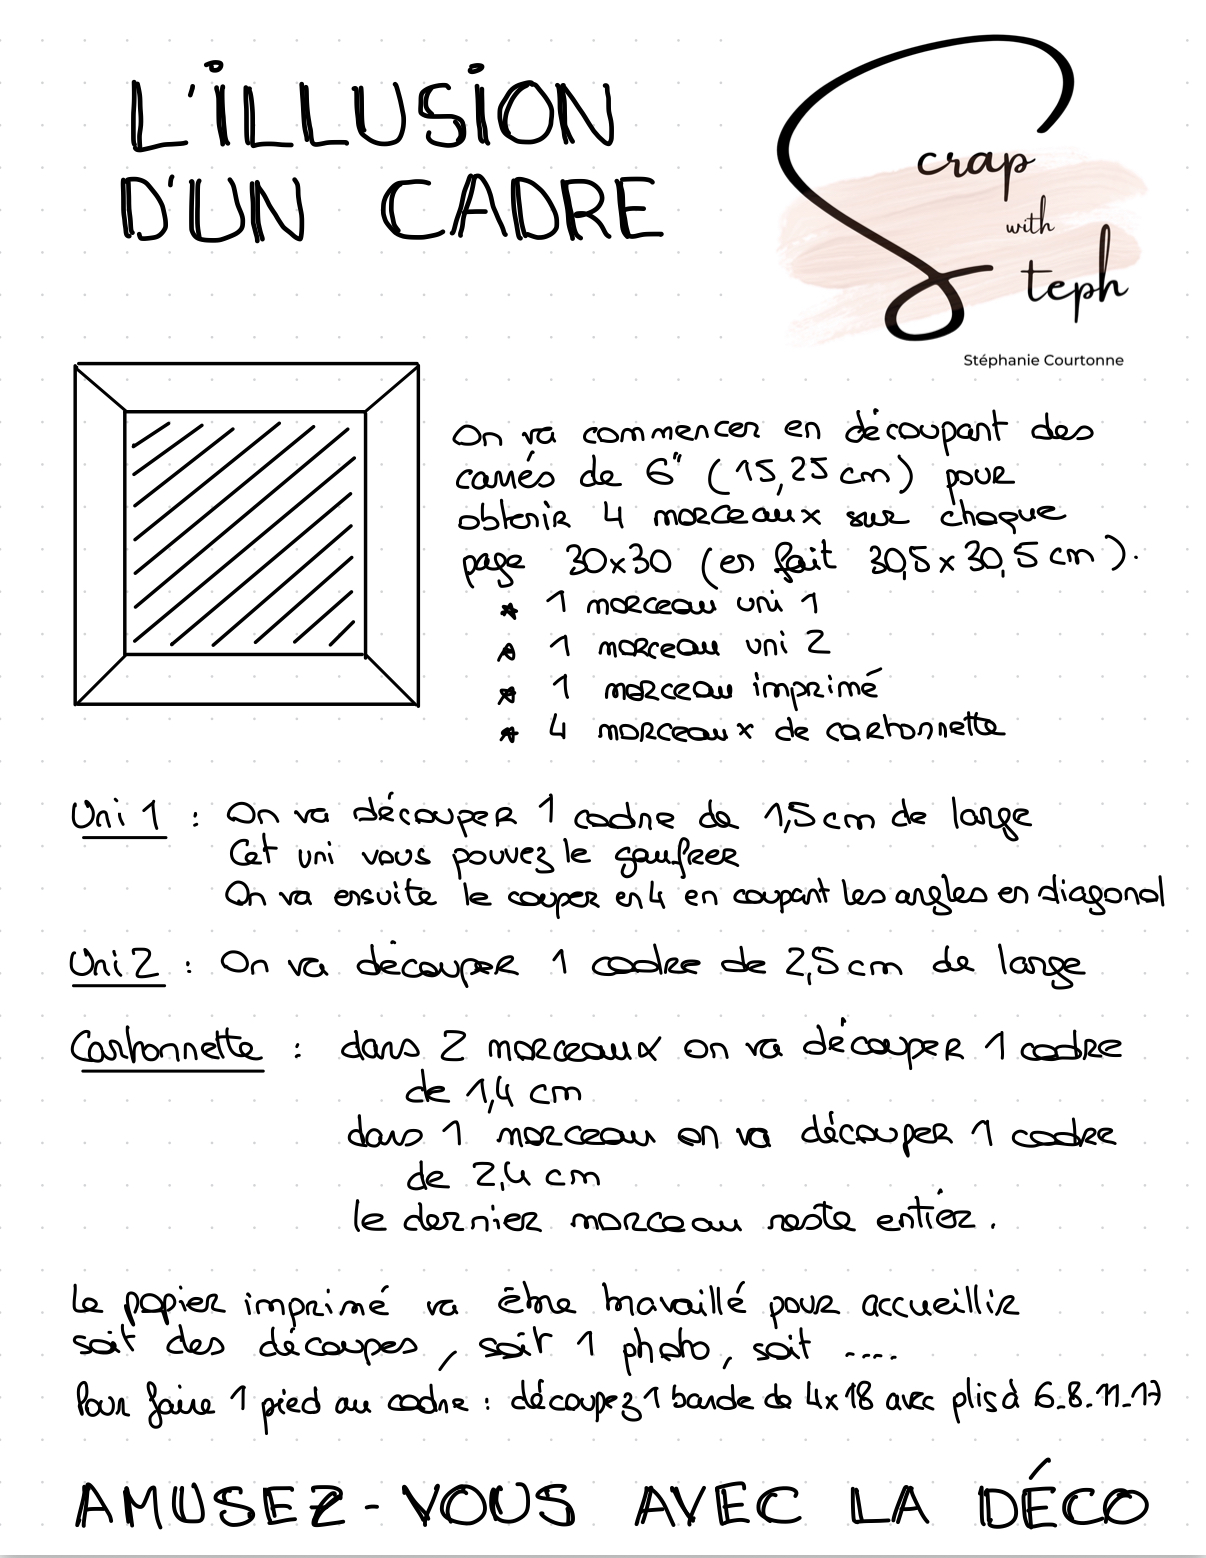 L'ILLUSION
D'UN CADRE
Scrap
with
Steph
Stéphanie Courtonne
On va commencer en découpant des
carrés de 6" (15,25 cm) pour
obtenir 4 morceaux sur chaque
page 30x30 (en fait 30,5 x 30,5 cm).
* 1 morceau uni 1
* 1 morceau uni 2
* 1 morceau imprimé
* 4 morceaux de cartonnette
Uni 1 : On va découper 1 cadre de 1,5 cm de large
Cet uni vous pouvez le gaufrer
On va ensuite le couper en 4 en coupant les angles en diagonal
Uni 2 : On va découper 1 cadre de 2,5 cm de large
Cartonnette : dans 2 morceaux on va découper 1 cadre
de 1,4 cm
dans 1 morceau on va découper 1 cadre
de 2,4 cm
le dernier morceau reste entier.
Le papier imprimé va être travaillé pour accueillir
soit des découpes, soit 1 photo, soit ....
Pour faire 1 pied au cadre : découpez 1 bande de 4x18 avec plis à 6.8.11.17
AMUSEZ-VOUS AVEC LA DÉCO